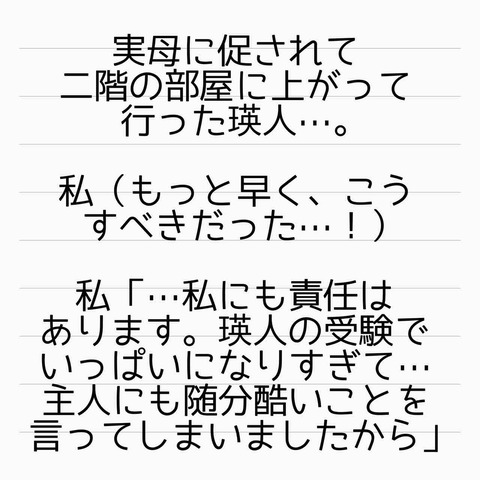 実母に促されて
二階の部屋に上がって
行った瑛人…。
私（もっと早く、こう
すべきだった…！）
私「…私にも責任は
あります。瑛人の受験で
いっぱいになりすぎて…
主人にも随分酷いことを
言ってしまいましたから」